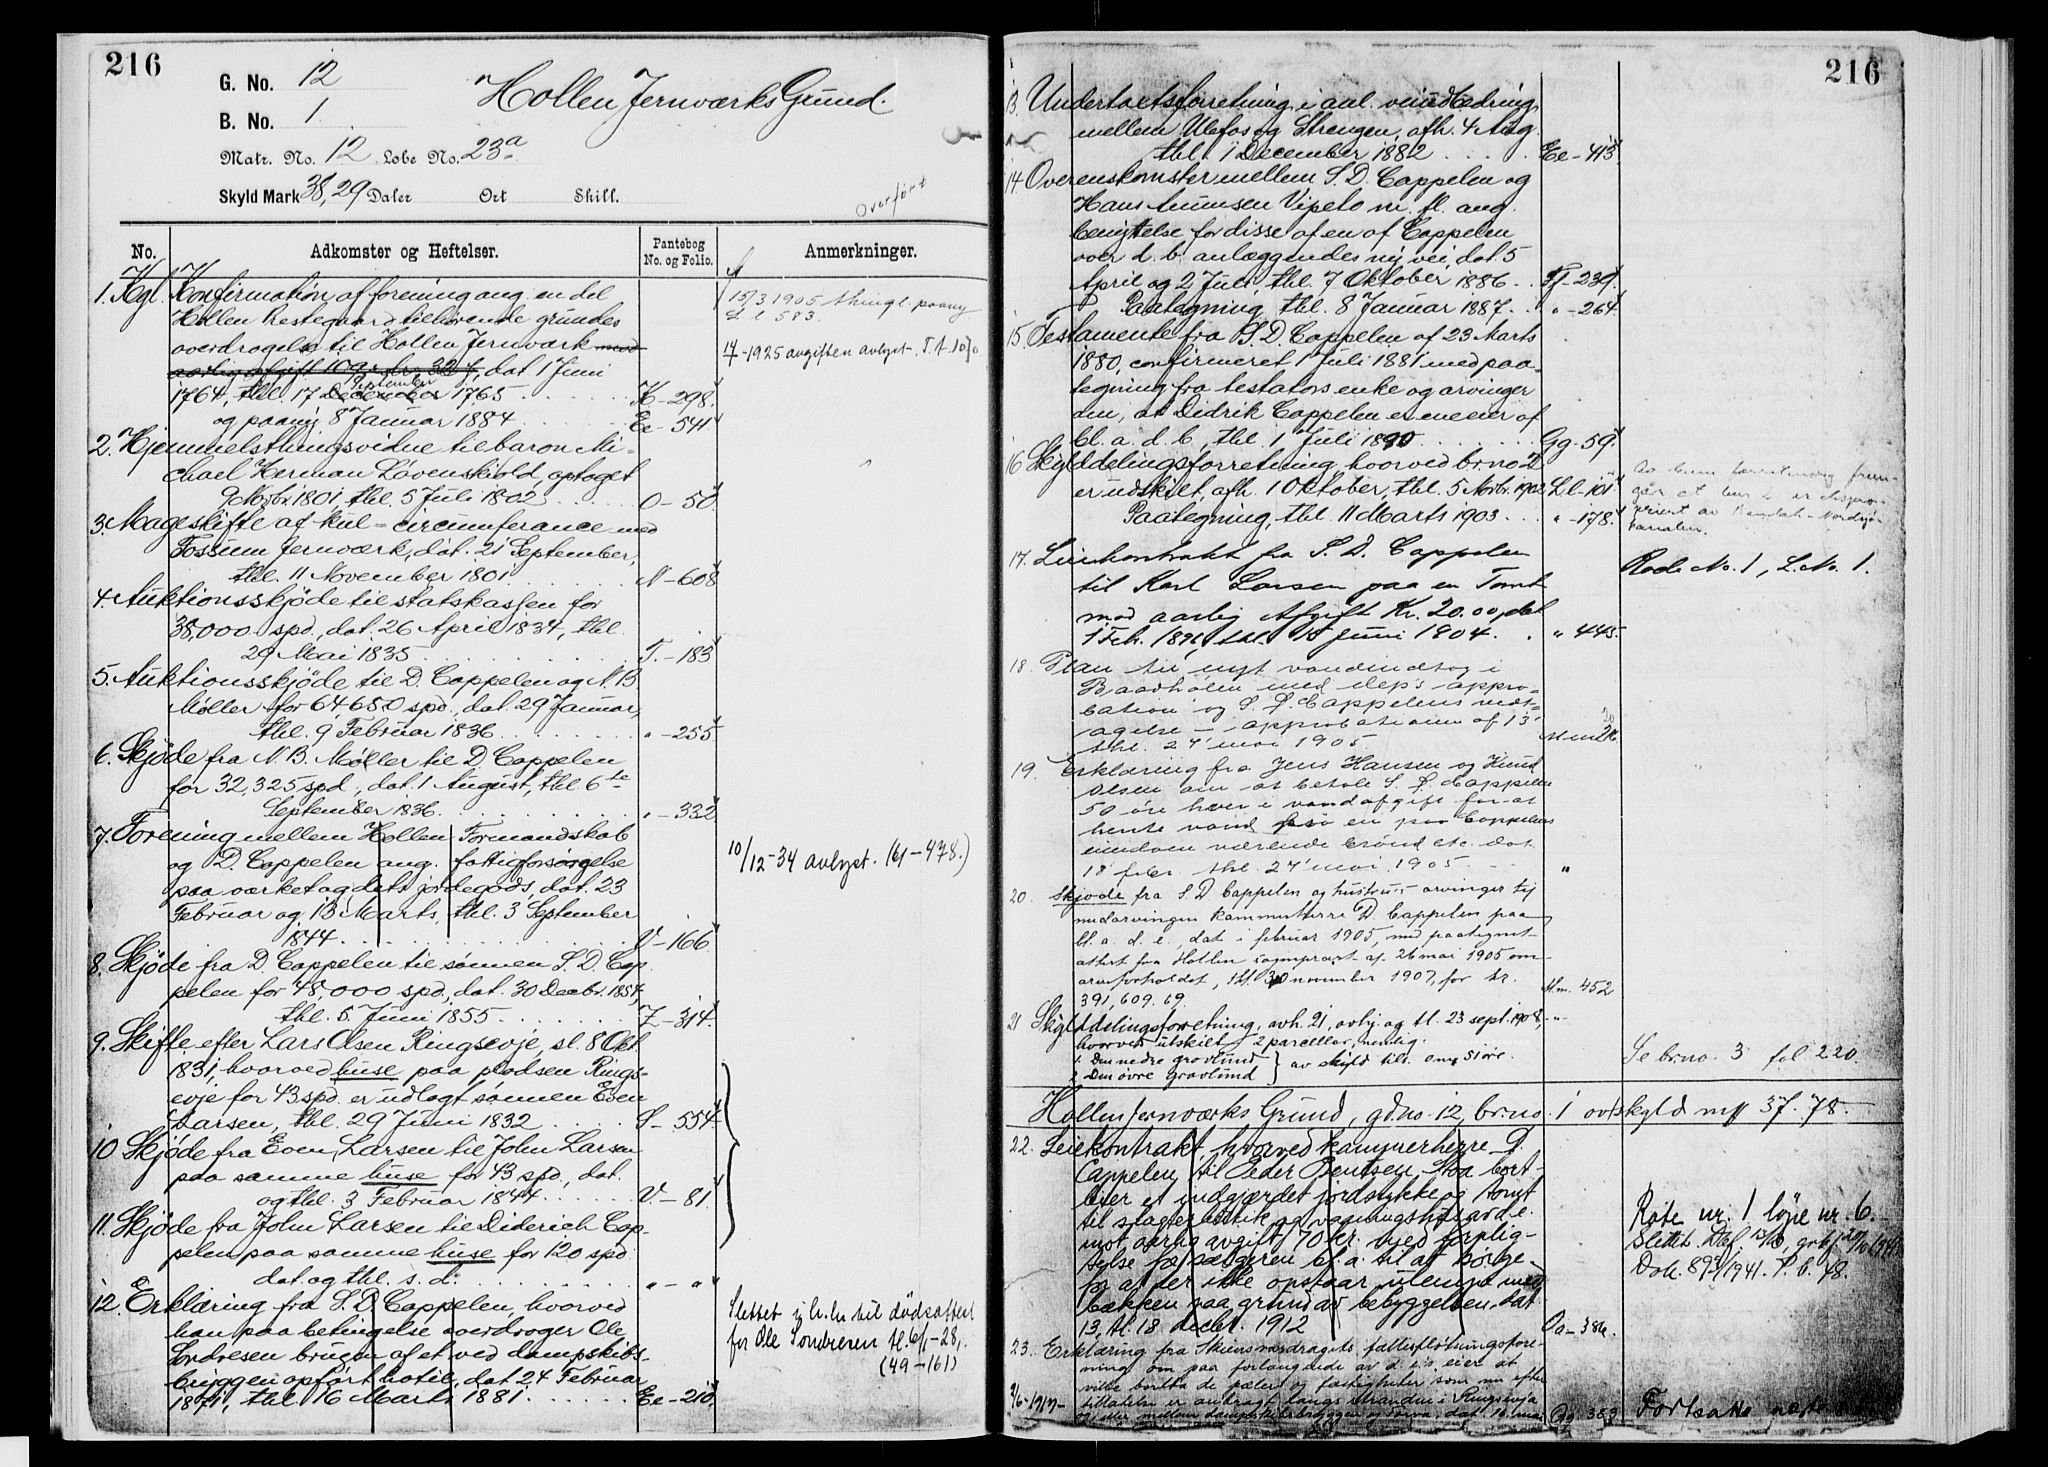 216
G. No. 12
Hollen Jernværks Grund.
B. No. 1
Matr. No. 12 Løbe No. 23a
Skyld Mark 38,29 Daler Ort Skill.
overført
No. Adkomster og Heftelser. Pantebog No. og Folio. Anmerkninger.
1. Kgl. Konfirmation af forening ang. en del
Hollen Prestegaard tilhørende grundes
overdragelse til Hollen Jernværk med
aarlig afgift 109 dat 1 Juni
September
1764, thl. 17 December 1765 K-298.
og paany 8 Januar 1884 Ee-541
15/3 1905 thingl. paany
Ll 583.
1925 avgiften avlyst.
2. Hjemmelsthingsvidne til baron Mi-
chael Herman Løvenskiold, optaget
9 Novbr. 1801, thl. 5 Juli 1802 O-50
3. Mageskifte af kul-circumferance med
Fossum Jernværk, dat. 21 September,
thl. 11 November 1801 N-608
4. Auktionsskjøde til statskassen for
38,000 spd., dat. 26 April 1834, thl.
29 Mai 1835 T.-183
5. Auktionsskjøde til D. Cappelen og N.B.
Møller for 64650 spd., dat. 29 Januar,
thl. 9 Februar 1836 " -255
6. Skjøde fra N.B. Møller til D. Cappelen
for 32,325 spd., dat. 1 August, thl. 6te
September 1836. " -332
7. Forening mellem Hollen Formandskab
og D. Cappelen ang. fattigforsørgelse
paa værket og dets jordegods, dat. 23
Februar og 13 Marts, thl. 3 September
1844 V-166
10/12-34 avlyst. (61-478.)
8. Skjøde fra D. Cappelen til sønnen S.D. Cap-
pelen for 48,000 spd., dat. 30 Decbr. 1854,
thl. 5 Juni 1855 Z-314.
9. Skifte efter Lars Olsen Ringsevje, sl. 8 Okt.
1831, hvorved huse paa pladsen Rings-
evje for 43 spd. er udlagt sønnen Even
Larsen, thl. 29 Juni 1832 S-554
10 Skjøde fra Even Larsen til John Larsen
paa samme huse for 43 spd., dat.
og thl. 3 Februar 1844 V-81
11. Skjøde fra John Larsen til Diderich Cap-
pelen paa samme huse for 120 spd.
dat. og thl. s. d. " - "
12. Erklæring fra S.D. Cappelen, hvorved
han paa betingelse overdrager Ole
Sondresen brugen af et ved dampskibs-
bryggen opført hotil, dat 24 Februar
1871, thl. 16 Marts 1881. Ee-210.
Slettet i h.h. til dødsattest
for Ole Sondresen tl. 6/1-28.
(49-161)
216
13 Undertaksforretning i anl. veiudbedring
mellem Ulefos og Strengen, afh. 4 Aug.
thl. 1 December 1882 Ee-413
14 Overenskomster mellem S.D. Cappelen og
Hans Amunsen Vipeto m. fl. ang.
benyttelse for disse af en af Cappelen
over d. b. anlæggendes ny vei, dat. 5
April og 2 Juli, thl. 7 Oktober 1886 Ff-239.
Paategning, thl. 8 Januar 1887. " -264
15. Testamente fra S.D. Cappelen af 23 Marts
1880, confirmeret 1 Juli 1881 med paa-
tegning fra testators enke og arvinger
om, at Didrik Cappelen er eneeier af
bl. a. d. b., thl. 1 Juli 1890 Gg-59
16 Skylddelingsforretning, hvorved br.no 2
er udskilt, afh. 1 Oktober, thl. 5 Novbr. 1902 Ll-101
Paategning, thl. 11 Marts 1903. " -178.
17. Leiekontrakt fra S.D. Cappelen
til Karl Larsen paa en Tomt
mod aarlig Afgift Kr. 20.00, dat
1 Feb. 1896, thl. 15 Juni 1904. " 445.
Rode No. 1, L. No. 1.
18. Plan til nyt vandindtag i
Baadholen med dep's appro-
bation og S.D. Cappelens vedt-
agelse - approbationen af 13
thl. 24 mai 1905.
19. Erklæring fra Jens Hansen og Knud
Olsen om at betale S.D. Cappelen
50 øre hver i vandafgift for at
hente vand fra en paa Cappelens
eiendom værende brønd etc. dat.
18 febr. thl. 24 mai 1905 "
20. Skjøde fra S.D. Cappelen og hustrus arvinger til
medarvingen kammerherre D. Cappelen paa
bl. a. d. e., dat i februar 1905, med paategnet
attest fra Hollen sogneprest af 26 mai 1905 om
arveforholdet, thl. 30 november 1907, for kr.
391,609.69. M.m. 452
21 Skylddelingsforretning, avh. 21, avhj. og tl. 23 sept. 1908, "
hvorved utskilt 2 parceller, nemlig:
1. Den nedre gravlund
2. Den øvre gravlund } av skyld tils. 51 øre.
Se br.no. 3 fol 220.
Hollen Jernværks Grund, gd.no. 12, br.no. 1 av skyld mk 37.78.
22. Leiekontrakt hvorved kammerherre D.
Cappelen til Peder Bentsen Moa bort-
leier et indgjærdet jordstykke og tomt
til slagterbutik og vaaningshus av d. e.
mot aarlig avgift 70 kr. med forplig-
telse for sælgeren bl. a. til at sørge
for at der ikke opstaar ulempe med
bækken paa grund av bebyggelsen, dat.
13, tl. 18 decbr. 1912 Oa-386.
Rote nr. 1 løpe nr. 6.
Dok. 893/1941. P.b. 78.
23. Erklæring fra Skiensvasdragets fællesfløtningsfore-
ning om paa forlangende av d. e.s. eier at
ville bortta de pæler og fastigheter som nu efter
tilladelse er anbragt langs stranden i Ringsevja
og eller mellem dampskibsbryggen og , dat. 16 mai
2/6-1917- 383
Fortsatte næste